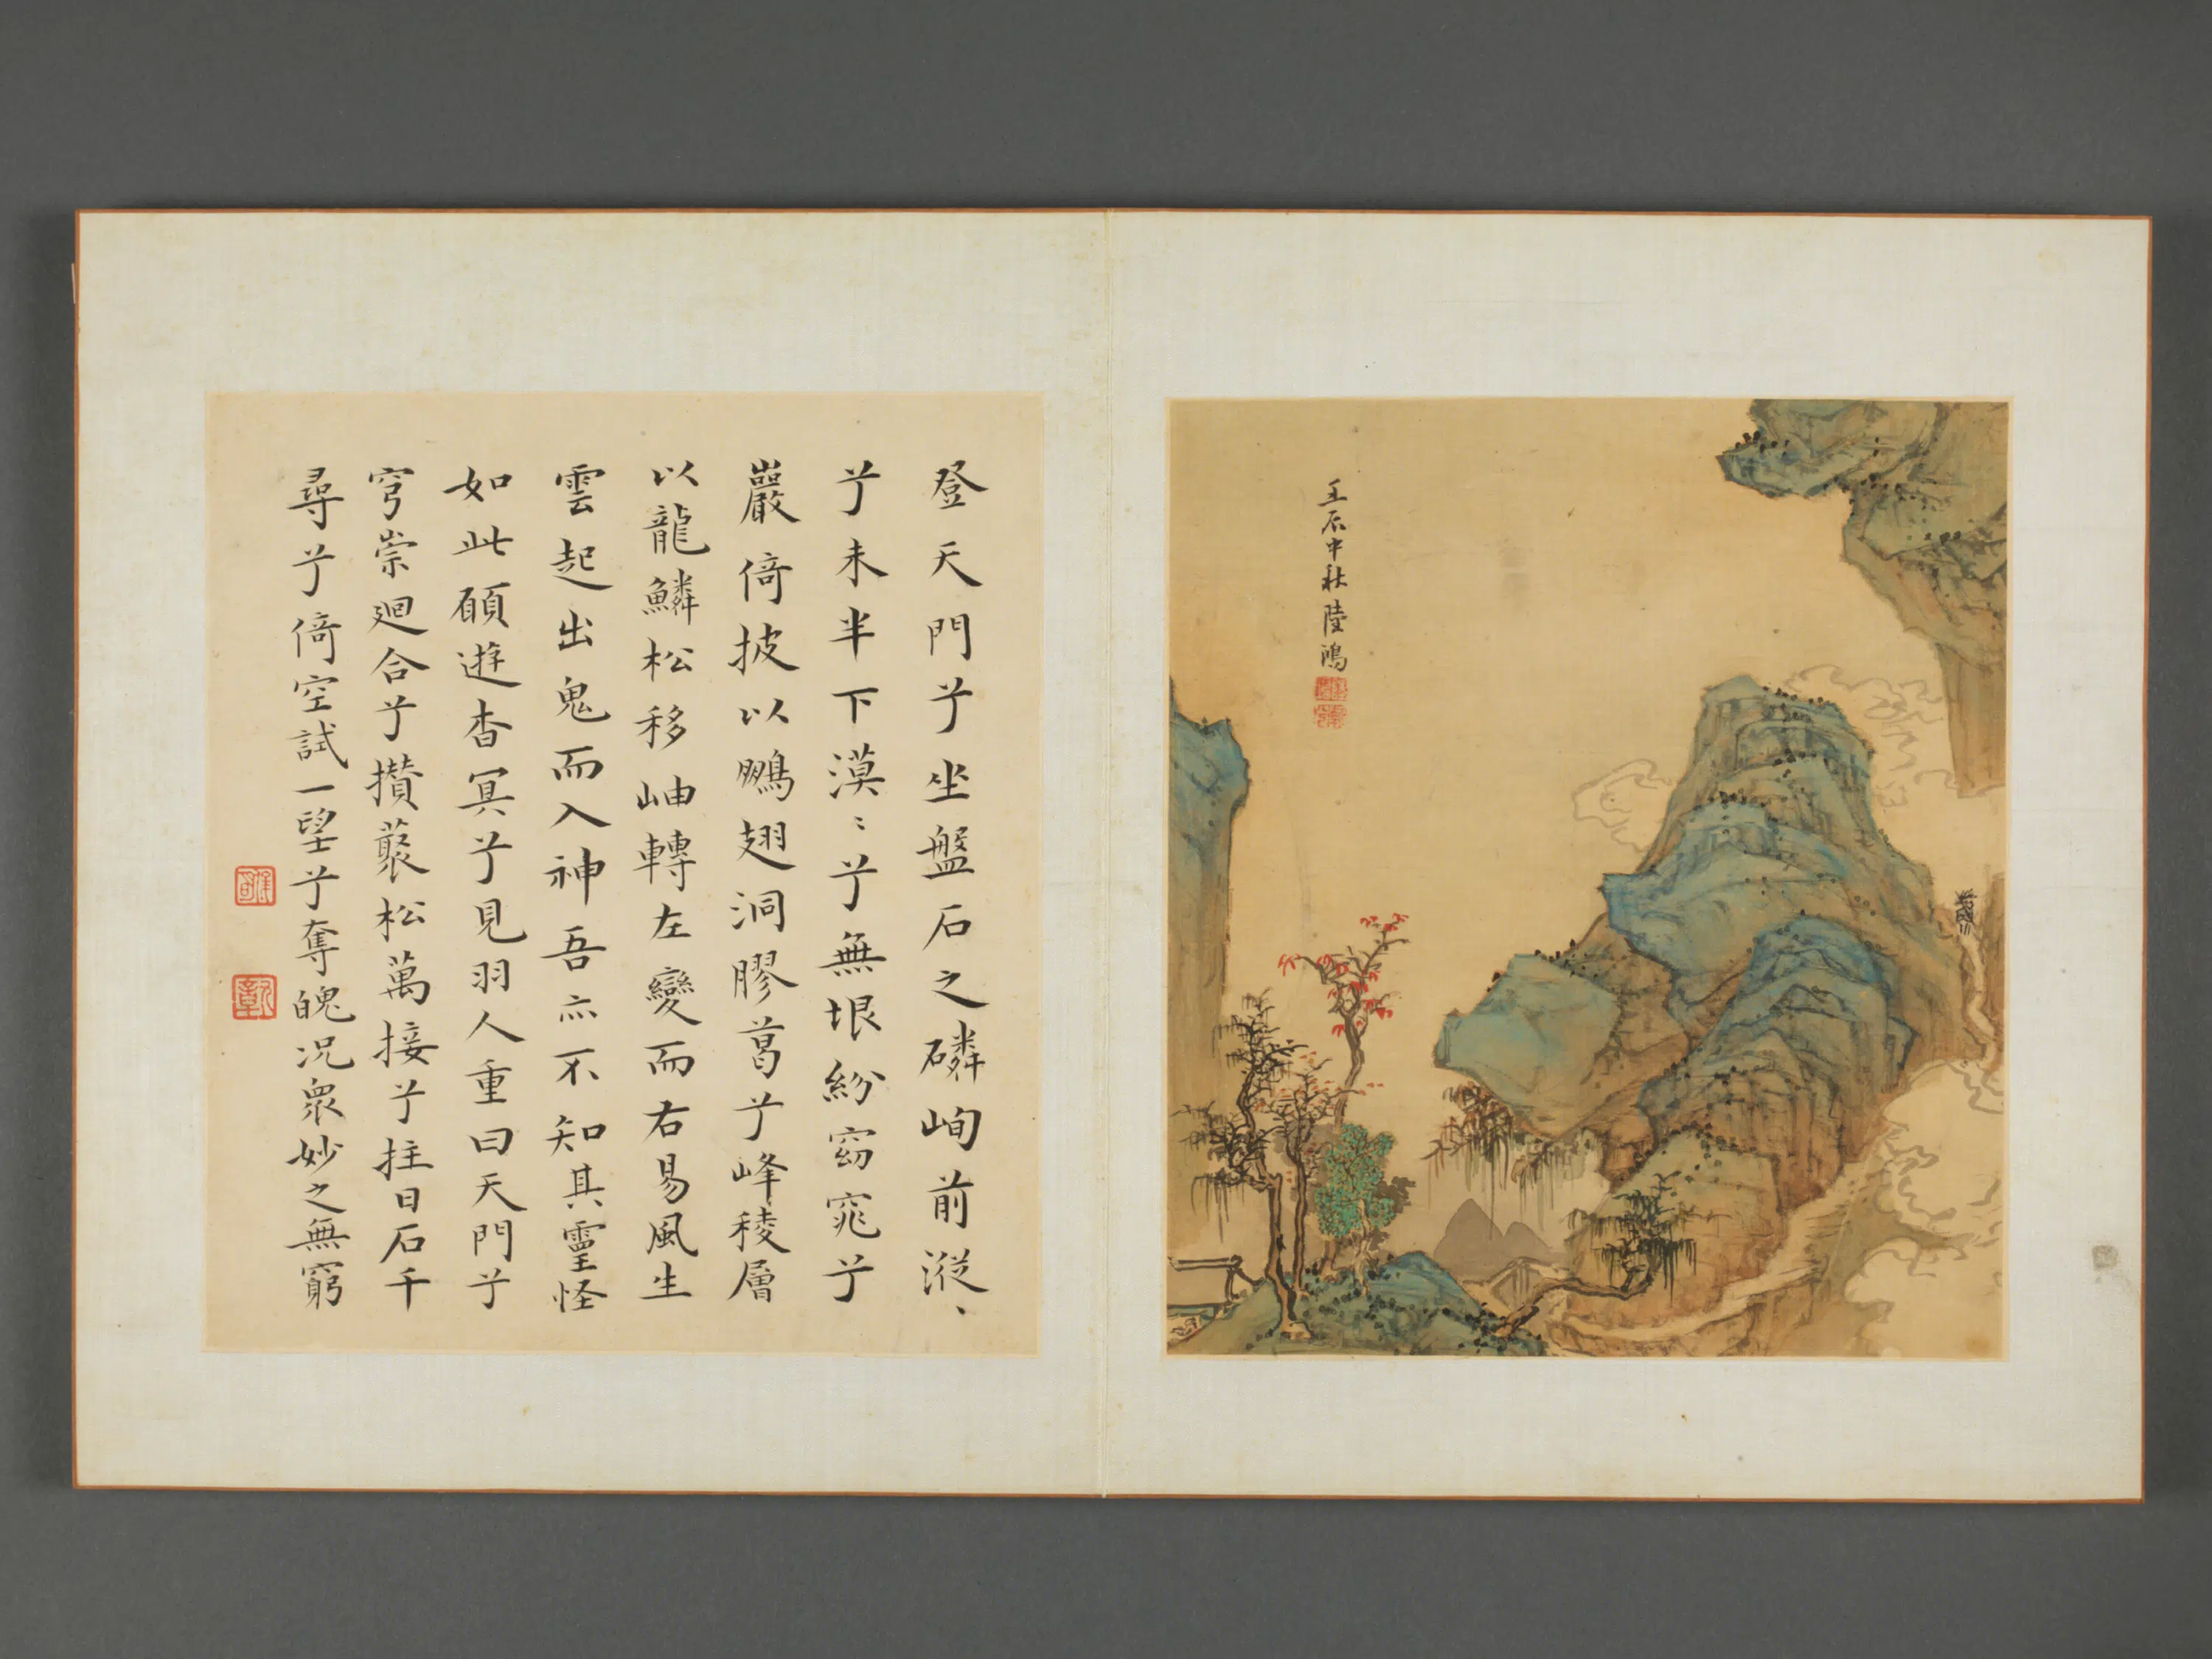 壬辰中秋陸鴻
登天門兮坐盤石之磷峋前漎〻
兮未半下漠〻兮無垠紛窈窕兮
巖倚披以鵬翅洞膠葛兮峰稜層
以龍鱗松移岫轉左變而右易風生
雲起出鬼而入神吾亦不知其靈怪
如此願遊杳冥兮見羽人重曰天門兮
穹崇迴合兮攢藂松萬接兮拄日石千
尋兮倚空試一望兮奪魄況衆妙之無窮